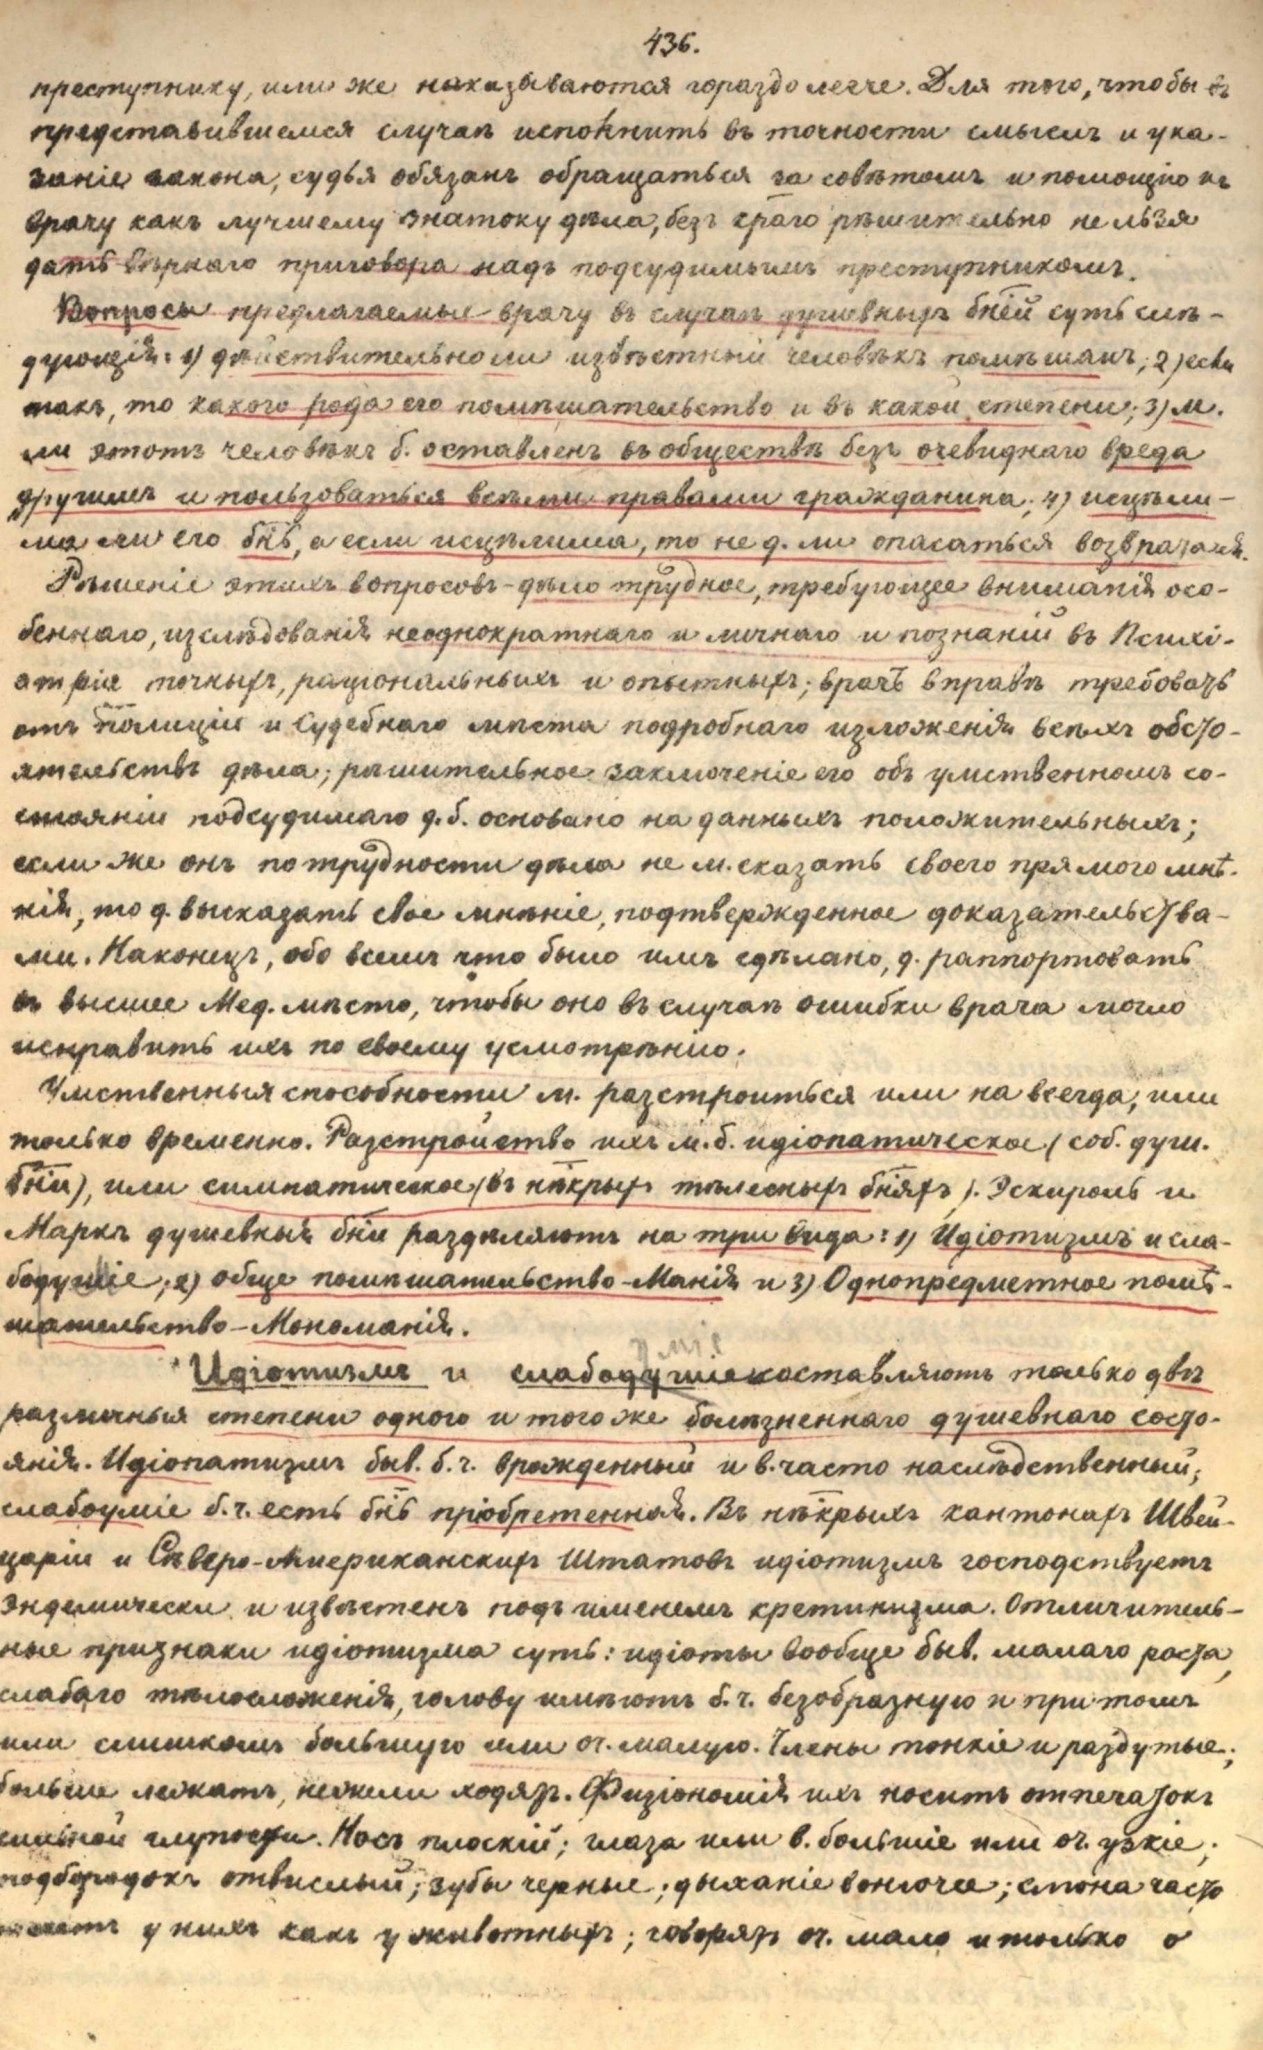 436.
преступнику, или же наказываются гораздо легче. Для того, чтобы въ
представившемся случаѣ исполнить въ точности смыслъ и ука-
заніе закона, судья обязанъ обращаться за совѣтомъ и помощію къ
врачу какъ лучшему знатоку дѣла, безъ краго рѣшительно нельзя
дать вѣрнаго приговора надъ подсудимымъ преступникомъ.
Вопросы предлагаемые врачу въ случаѣ душевныхъ бней суть слѣ-
дующія: 1) дѣйствительно ли извѣстный человѣкъ помѣшанъ; 2) если
такъ, то какого рода его помѣшательство и въ какой степени; 3) м.
ли этотъ человѣкъ б. оставленъ въ обществѣ безъ очевиднаго вреда
другимъ и пользоваться всѣми правами гражданина; 4) исцѣли-
ма ли его бнь, а если исцѣлима, то не д. ли опасаться возврата ея.
Рѣшеніе этихъ вопросовъ - дѣло трудное, требующее вниманія осо-
беннаго, изслѣдованія неоднократнаго и личнаго и познаній въ Психі-
атріи точныхъ, раціональныхъ и опытныхъ; врачъ вправѣ требовать
отъ полиціи и Судебнаго мѣста подробнаго изложенія всѣхъ обсто-
ятельствъ дѣла; рѣшительное заключеніе его объ умственномъ со-
стояніи подсудимаго д. б. основано на данныхъ положительныхъ;
если же онъ по трудности дѣла не м. сказать своего прямого мнѣ-
нія, то д. высказать свое мнѣніе, подтвержденное доказательства-
ми. Наконецъ, обо всемъ что было имъ сдѣлано, д. раппортовать
въ высшее Мед. мѣсто, чтобы оно въ случаѣ ошибки врача могло
исправить ихъ по своему усмотрѣнію.
Умственныя способности м. разстроиться или на всегда, или
только временно. Разстройство ихъ м. б. идіопатическое (соб. душ.
бни), или симпатическое (въ нѣкрыхъ тѣлесныхъ бняхъ). Эскироль и
Маркъ душевныя бни раздѣляютъ на три вида: 1) Идіотизмъ и сла-
бодушіе; 2) обще помѣшательство - Манія и 3) Однопредметное помѣ-
шательство - Мономанія.
умія
Идіотизмъ и слабодушіе составляютъ только двѣ
различныя степени одного и того же болѣзненнаго душевнаго состо-
янія. Идіопатизмъ быв. б. ч. врожденный и в. часто наслѣдственный;
слабоуміе б. ч. есть бнь пріобретенная. Въ нѣкрыхъ кантонахъ Швей-
царіи и Сѣверо-Американскихъ Штатовъ идіотизмъ господствуетъ
эндемически и извѣстенъ подъ именемъ кретинизма. Отличитель-
ные признаки идіотизма суть: идіоты вообще быв. малаго роста,
слабаго тѣлосложенія, голову имѣютъ б. ч. безобразную и притомъ
или слишкомъ большую или оч. малую. Члены тонкіе и раздутые;
больше лежатъ, нежели ходятъ. Физіономія ихъ носитъ отпечатокъ
сильной глупости. Носъ плоскій; глаза или в. большіе или оч. узкіе;
подбородокъ отвислый; зубы черные; дыханіе вонючее; слюна часто
течетъ у нихъ какъ у животныхъ; говорятъ оч. мало и только о